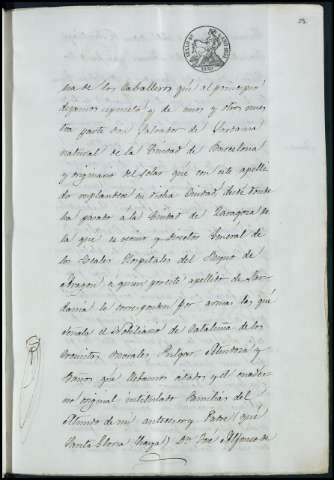 sea de los Caballeros que al principio
dejamos expuesta y de unos y otros nues
tra parte don Salvador de Sardaña
natural de la Ciudad de Barcelona
y originario del solar que con este apelli
do implantado en dicha Ciudad desde donde
ha pasado á la Ciudad de Zaragoza de
la que es vecino y Director General de
los Reales Hospitales del Reyno de
Aragon á quien por este apellido de Sar
dania le corresponden por armas las que
señala el Nobiliario de Cataluña de los
Cronistas Morales, Pulgar, Mendoza y
Baños que llevamos citados y el quader
no original intitulado Familias del
Mundo de mi antecesor y Padre (que
Santa Gloria Haya) Dn José Alfonso de